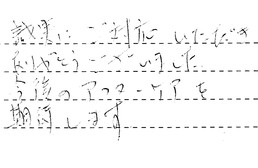 誠実にご対応いただき
ありがとうございました
今後のアフターケアを
期待します